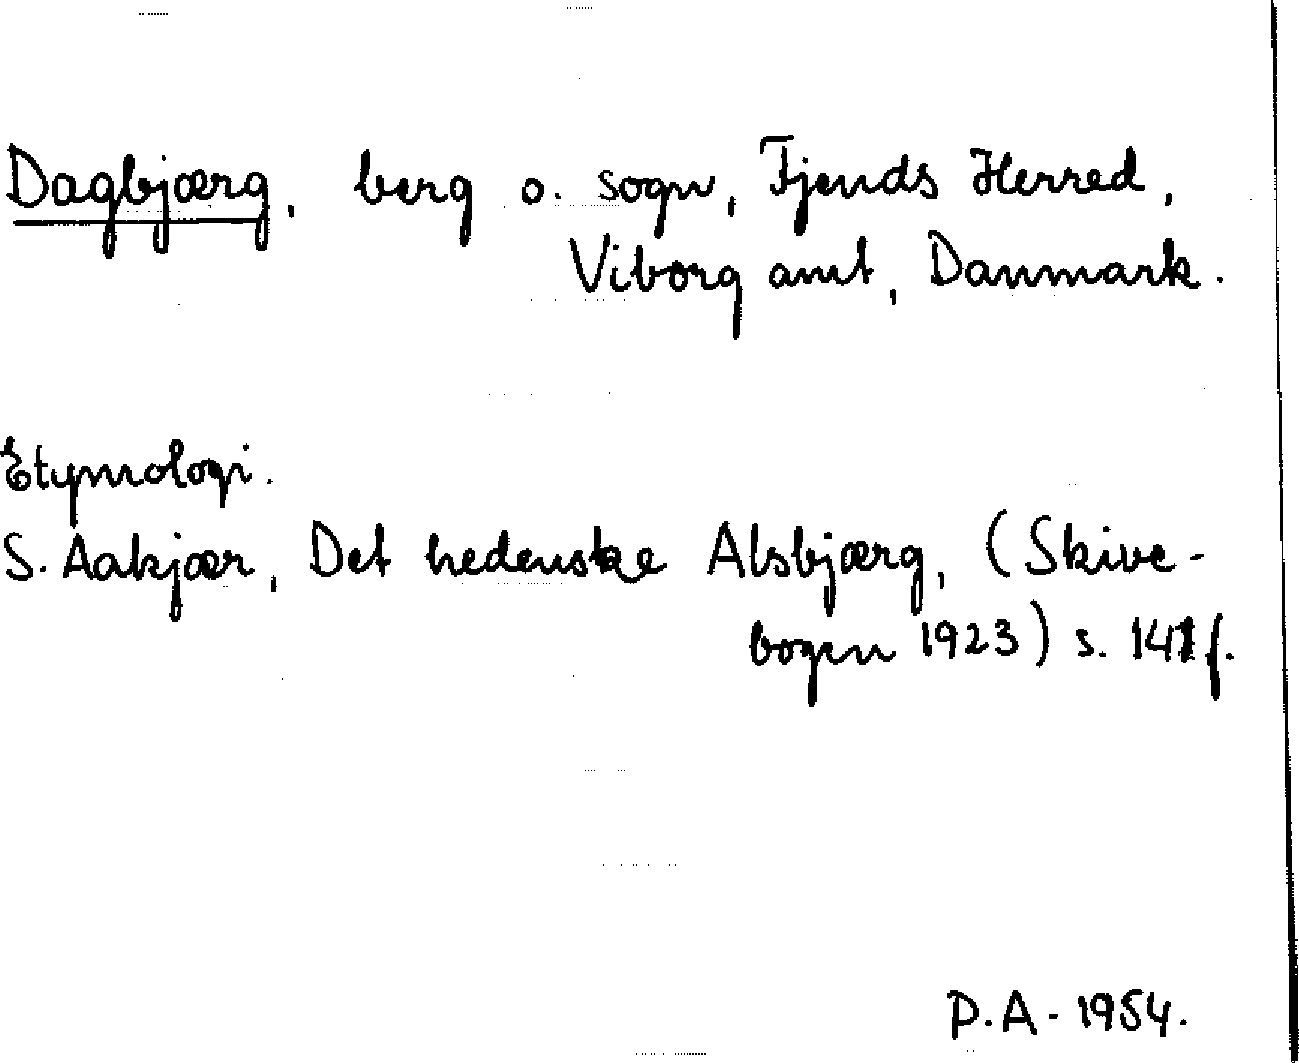 Dagbjærg, berg o. sogn, Fjends Herred,
Viborg amt, Danmark.
Etymologi.
S. Aakjær, Det hedenske Alsbjærg, (Skive-
bogen 1923) s. 141 f.
P.A. 1954.